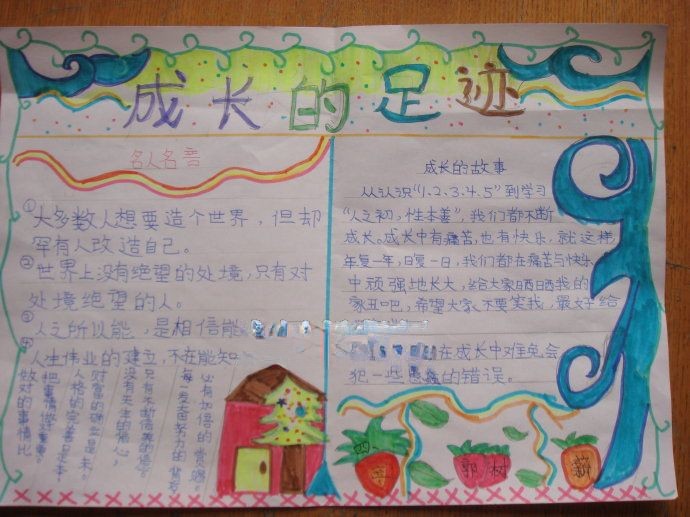 成长的足迹
名人名言
①大多数人想要造个世界，但却
罕有人改造自己。
②世界上没有绝望的处境，只有对
处境绝望的人。
③人之所以能，是相信能
④人生伟业的建立，不在能知
每一发奋努力的背后
必有加倍的赏赐。
只有不断
没有失本的
财富是末。
人格的完善是本，
把事情做好重要。
做对的事情比
成长的故事
从认识“1.2.3.4.5”到学习
“人之初，性本善”，我们都不断
成长。成长中有痛苦，也有快乐，就这样
年复一年，日复一日，我们都在痛苦与快乐
中顽强地长大，给大家晒晒我的
家丑吧，希望大家不要笑我，最好给
在成长中难免会
犯一些的错误。
四
郭树